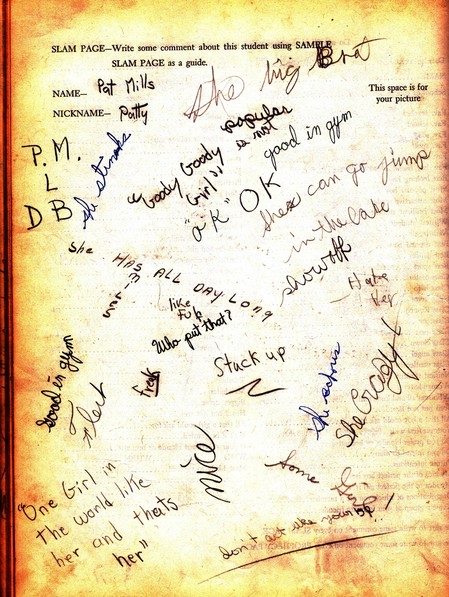 SLAM PAGE—Write some comment about this student using SAMPLE
SLAM PAGE as a guide.
NAME— Pat Mills
NICKNAME— Patty
This space for
your picture
She big Brat
popular
is not
good in gym
P. M.
L
D B
she stinks
"Goody Goody
Girl"
"OK" OK
She can go jump
in the lake
showoff
Hate
her
She
HAS ALL DAY LONG
like
Who put that?
Stuck up
freak
Good in gym
nice
Some
Girl
"One Girl in
the world like
her and thats
her"
don't act like your